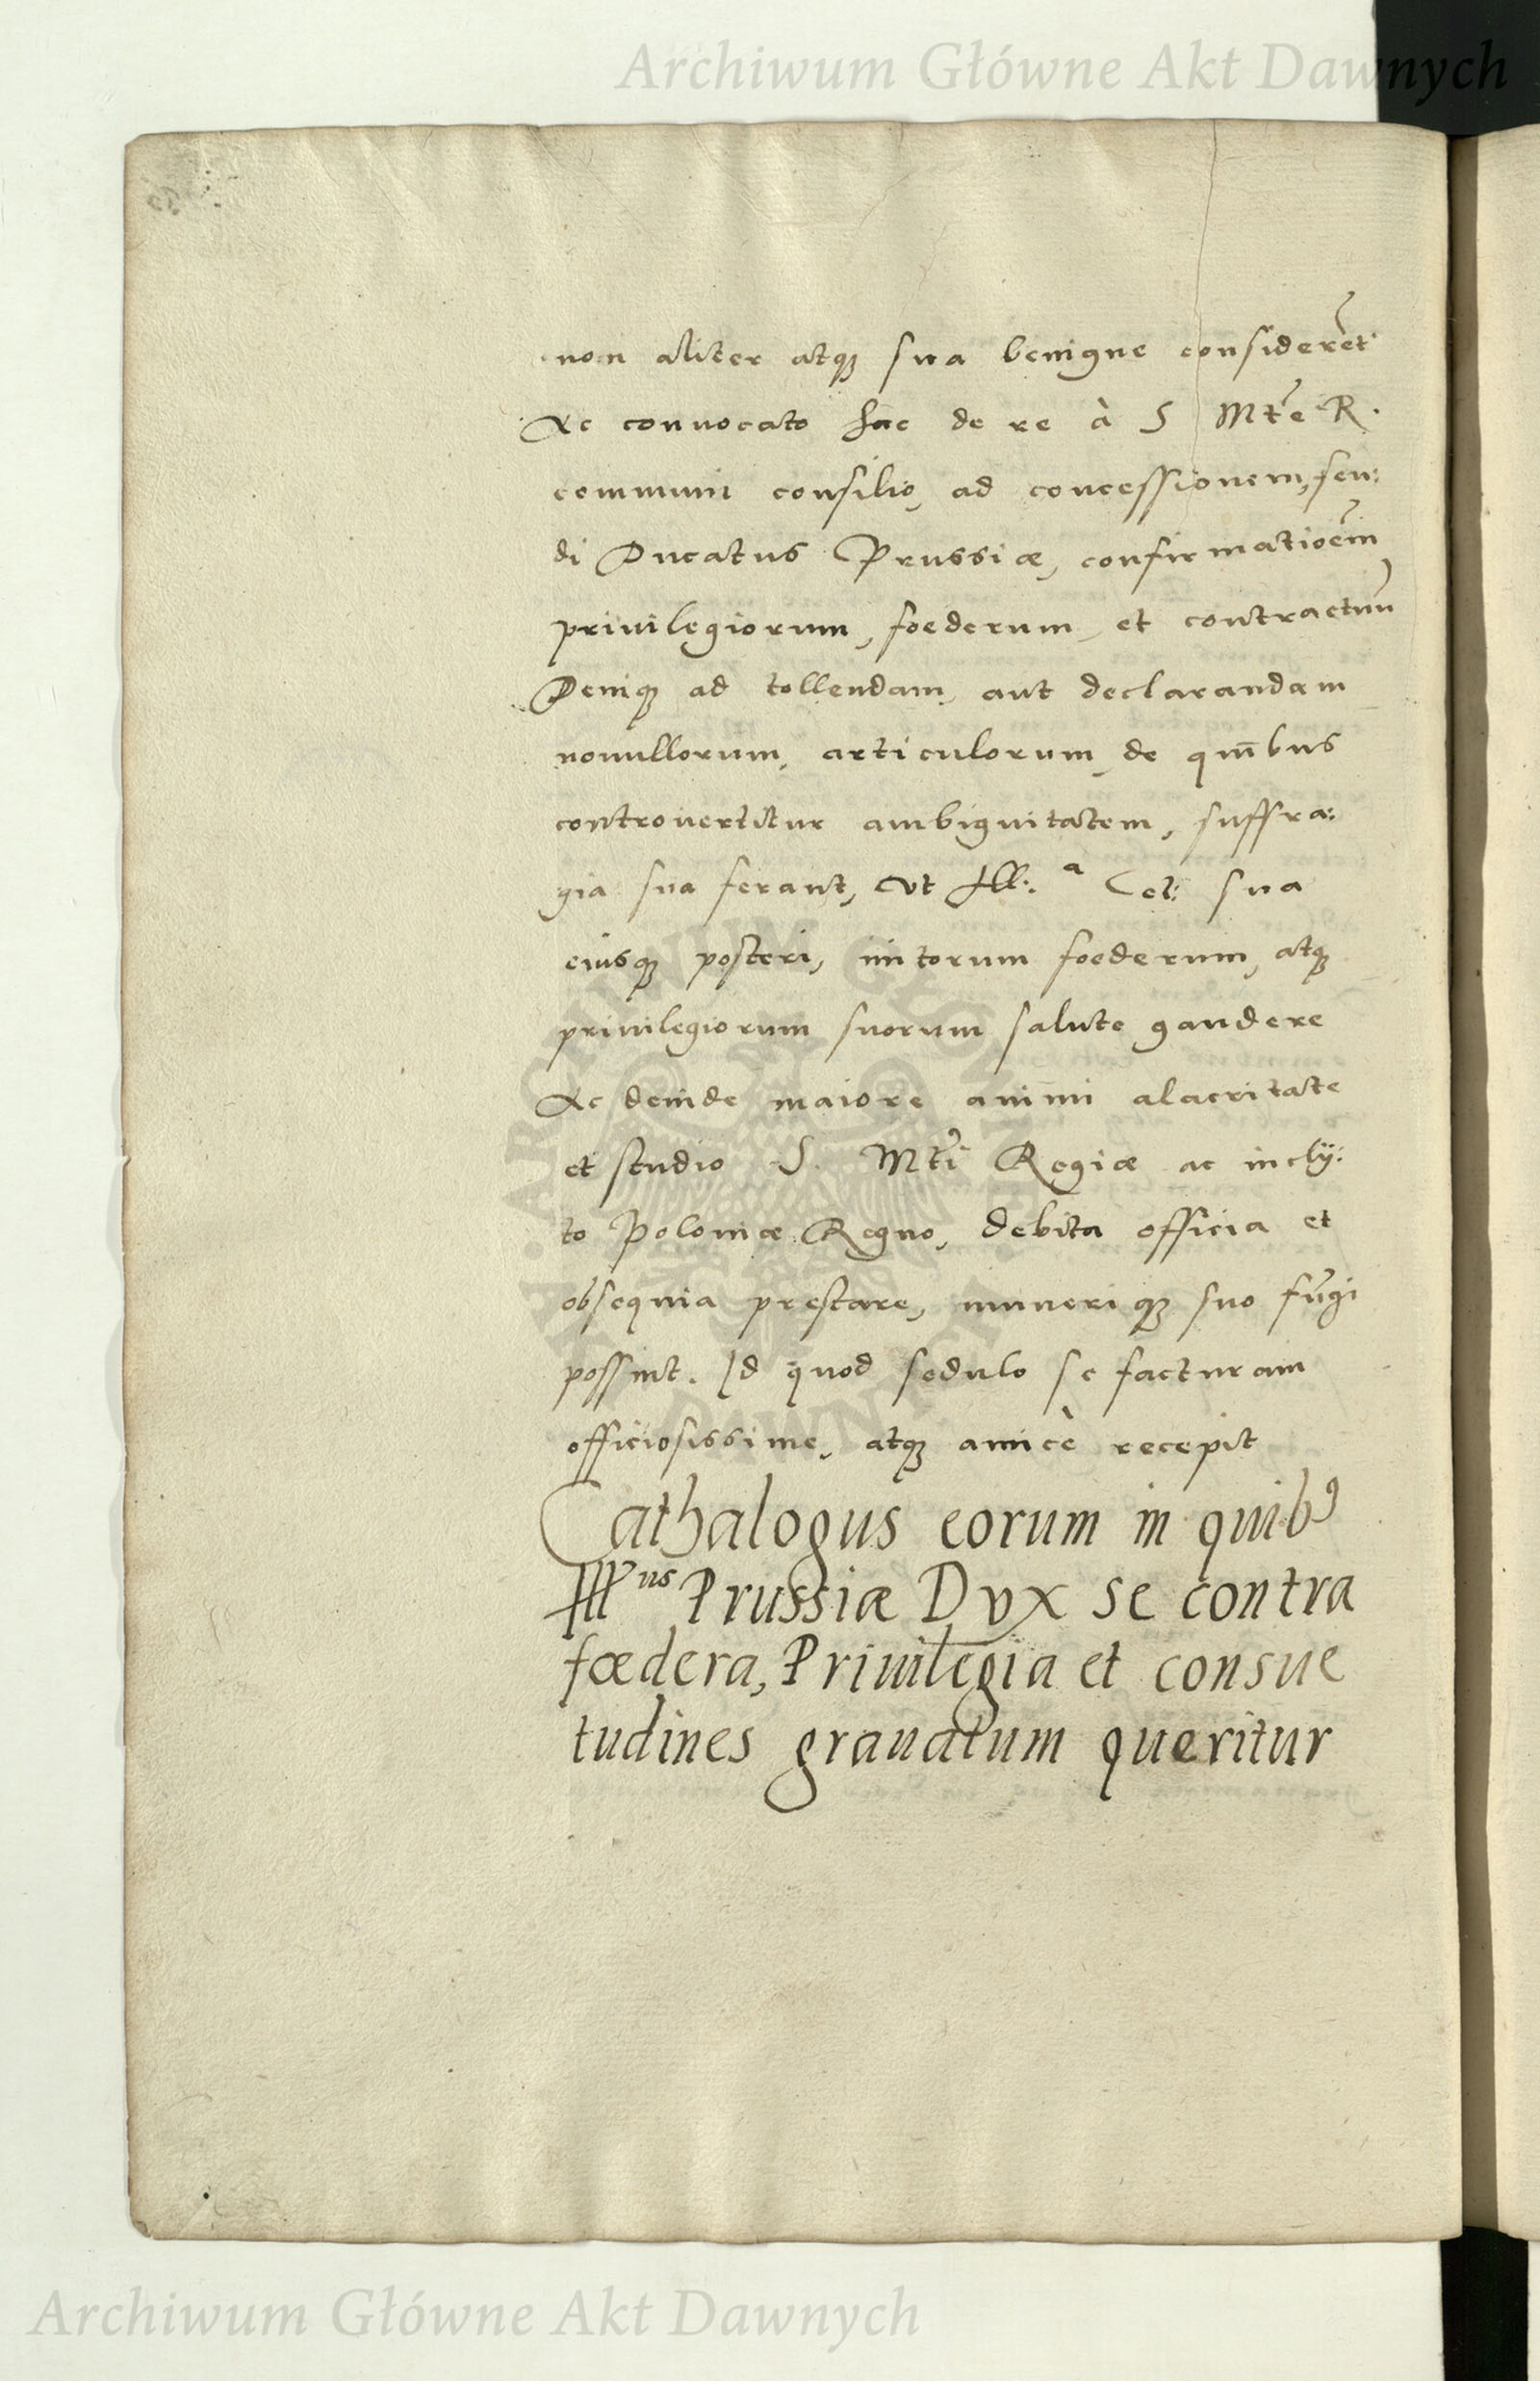 Archiwum Główne Akt Dawnych
non aliter atq; sua benigne considerēt
Ac conuocato hac de re à S Mt̃e R.
communi consilio, ad concessionem, feu:
di Ducatus Prussiæ, confirmatioēm
priuilegiorum, foederum et contractuū
Deniq; ad tollendam, aut declarandam
nonullorum, articulorum, de qui̅bus
controuertitur ambiguitatem, suffra:
gia sua ferant, Vt Ill:ᵃ Cel: sua
eiusq; posteri, initorum foederum, atq;
priuilegiorum suorum salute gaudere
Ac deinde maiore animi alacritate
et studio S. Mt̃i Regiæ ac incly:
to Poloniæ Regno, debita officia et
obsequia prestare, muneriq; suo fūgi
possint. Id quod sedulo se facturam
officiosissime, atq; amicè recepit
Cathalogus eorum in quibꝰ
Illᵘˢ Prussiæ Dvx se contra
fœdera, Priuilegia et consue
tudines grauatum queritur
Archiwum Główne Akt Dawnych